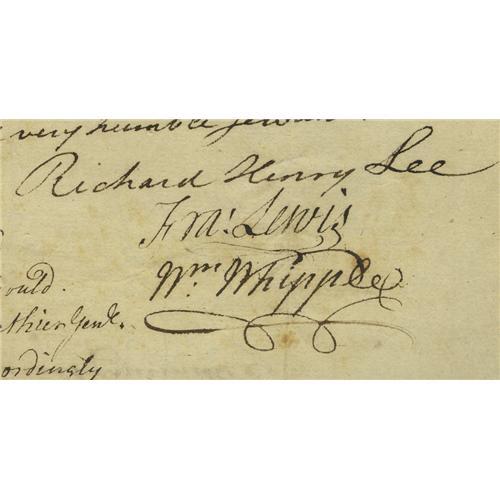 very humble servan
Richard Henry Lee
Fra: Lewis
Wm Whipple
ould.
ordingly